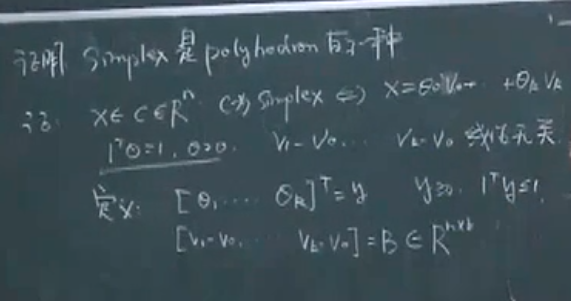 证明 Simplex 是 polyhedron 的一种
证: x∈C∈Rⁿ C为 Simplex ⇔ x=θ₀v₀+ ⋯ +θₖvₖ
1ᵀθ=1, θ≥0. v₁-v₀ ⋯ vₖ-v₀ 线性无关.
定义: [θ₁ ⋯ θₖ]ᵀ=y y≥0. 1ᵀy≤1,
[v₁-v₀, ⋯ vₖ-v₀]=B∈Rⁿˣᵏ